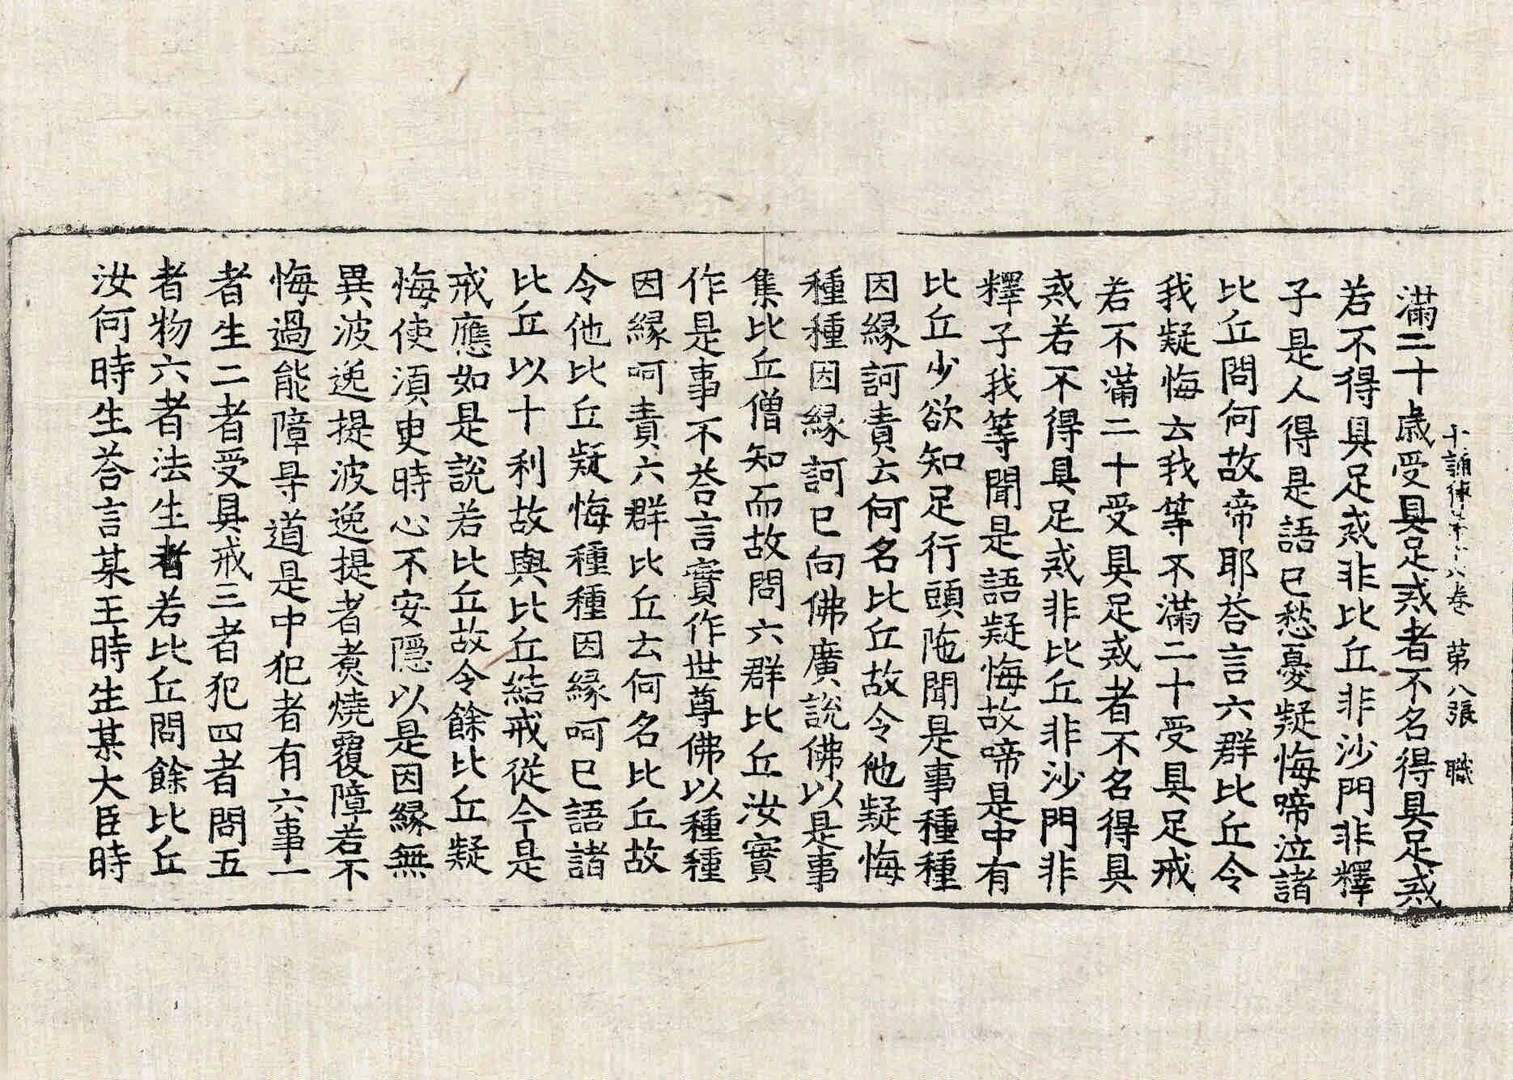 十誦律第十六卷 第八張 職
滿二十歲受具足戒者不名得具足戒
若不得具足戒非比丘非沙門非釋
子是人得是語已愁憂疑悔啼泣諸
比丘問何故啼耶荅言六群比丘令
我疑悔云我等不滿二十受具足戒
若不滿二十受具足戒者不名得具
戒若不得具足戒非比丘非沙門非
釋子我等聞是語疑悔故啼是中有
比丘少欲知足行頭陁聞是事種種
因緣訶責云何名比丘故令他疑悔
種種因緣訶已向佛廣說佛以是事
集比丘僧知而故問六群比丘汝實
作是事不荅言實作世尊佛以種種
因緣呵責六群比丘云何名比丘故
令他比丘疑悔種種因緣呵已語諸
比丘以十利故與比丘結戒從今是
戒應如是說若比丘故令餘比丘疑
悔使須臾時心不安隱以是因緣無
異波逸提波逸提者煮燒覆障若不
悔過能障㝵道是中犯者有六事一
者生二者受具戒三者犯四者問五
者物六者法生者若比丘問餘比丘
汝何時生荅言某王時生某大臣時